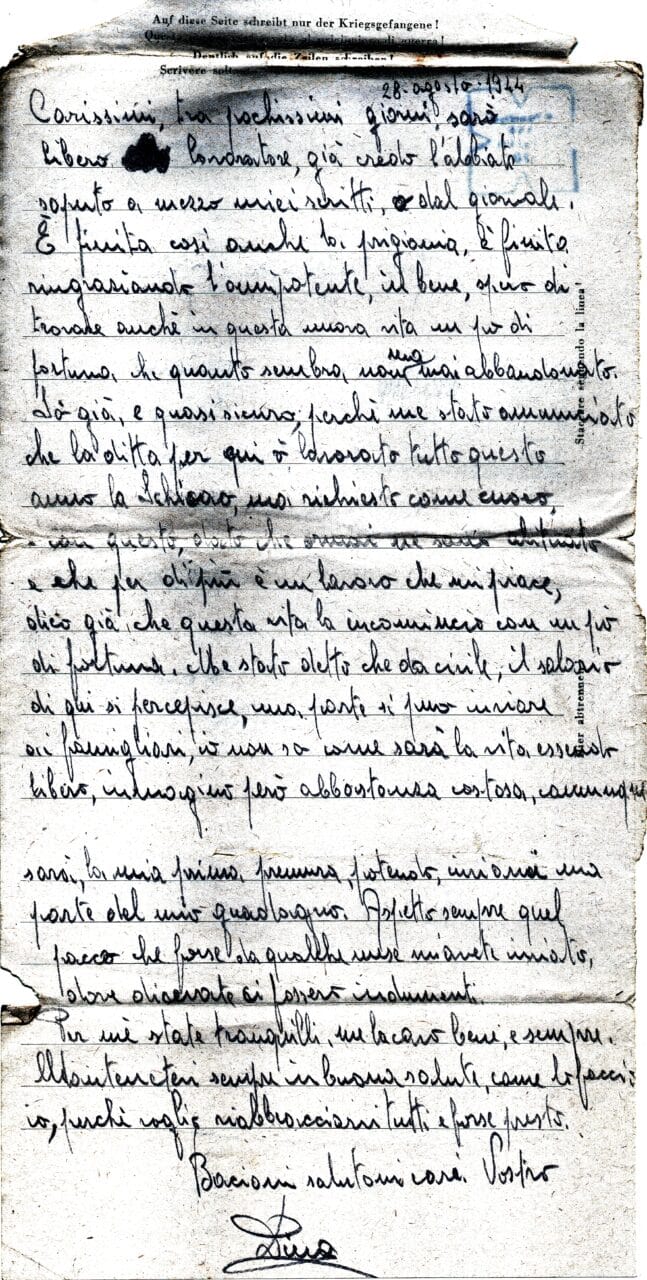 Auf diese Seite schreibt nur der Kriegsgefangene!
Deutlich auf die Zeilen schreiben!
Scrivere
28-agosto-1944
Carissimi, tra pochissimi giorni, sarò
libero lavoratore, già credo l'abbiate
saputo a mezzo miei scritti, o dal giornale.
È finita così anche la prigionia, è finita
ringrasiando l'onnipotente, in bene, spero di
trovare anche in questa nuova vita un po di
fortuna, che quanto sembra, non ma mai abbandonato.
Là già, e quasi sicuro, perchè me stato annunciato
che la ditta per qui ò lavorato tutto questo
anno la Schicao, ma richiesto come cuoco,
con questo, dato che ormai ne sono
e che per di più è un lavoro che mi piace,
dico già, che questa vita la incomincio con un pò
di fortuna. Me stato detto che da civile, il salario
di qui si percepisce, una parte si puo inviare
ai famigliari, io non so come sarà la vita essendo
libero, immagino però abbastanza costosa, comunque
sarà, la mia prima premura, potendo, inviarvi una
parte del mio guadagno. Aspetto sempre quel
pacco che forse da qualche mese m'avete inviato,
dove dicevate ci fossero indumenti.
Per me state tranquilli, me la cavo bene, e sempre.
Mantenetevi sempre in buona salute, come lo faccio
io, perchè voglio riabbracciarvi tutti e forse presto.
Bacioni salutoni cari. Vostro
Dino
Staccare secondo la linea!
Hier abtrennen